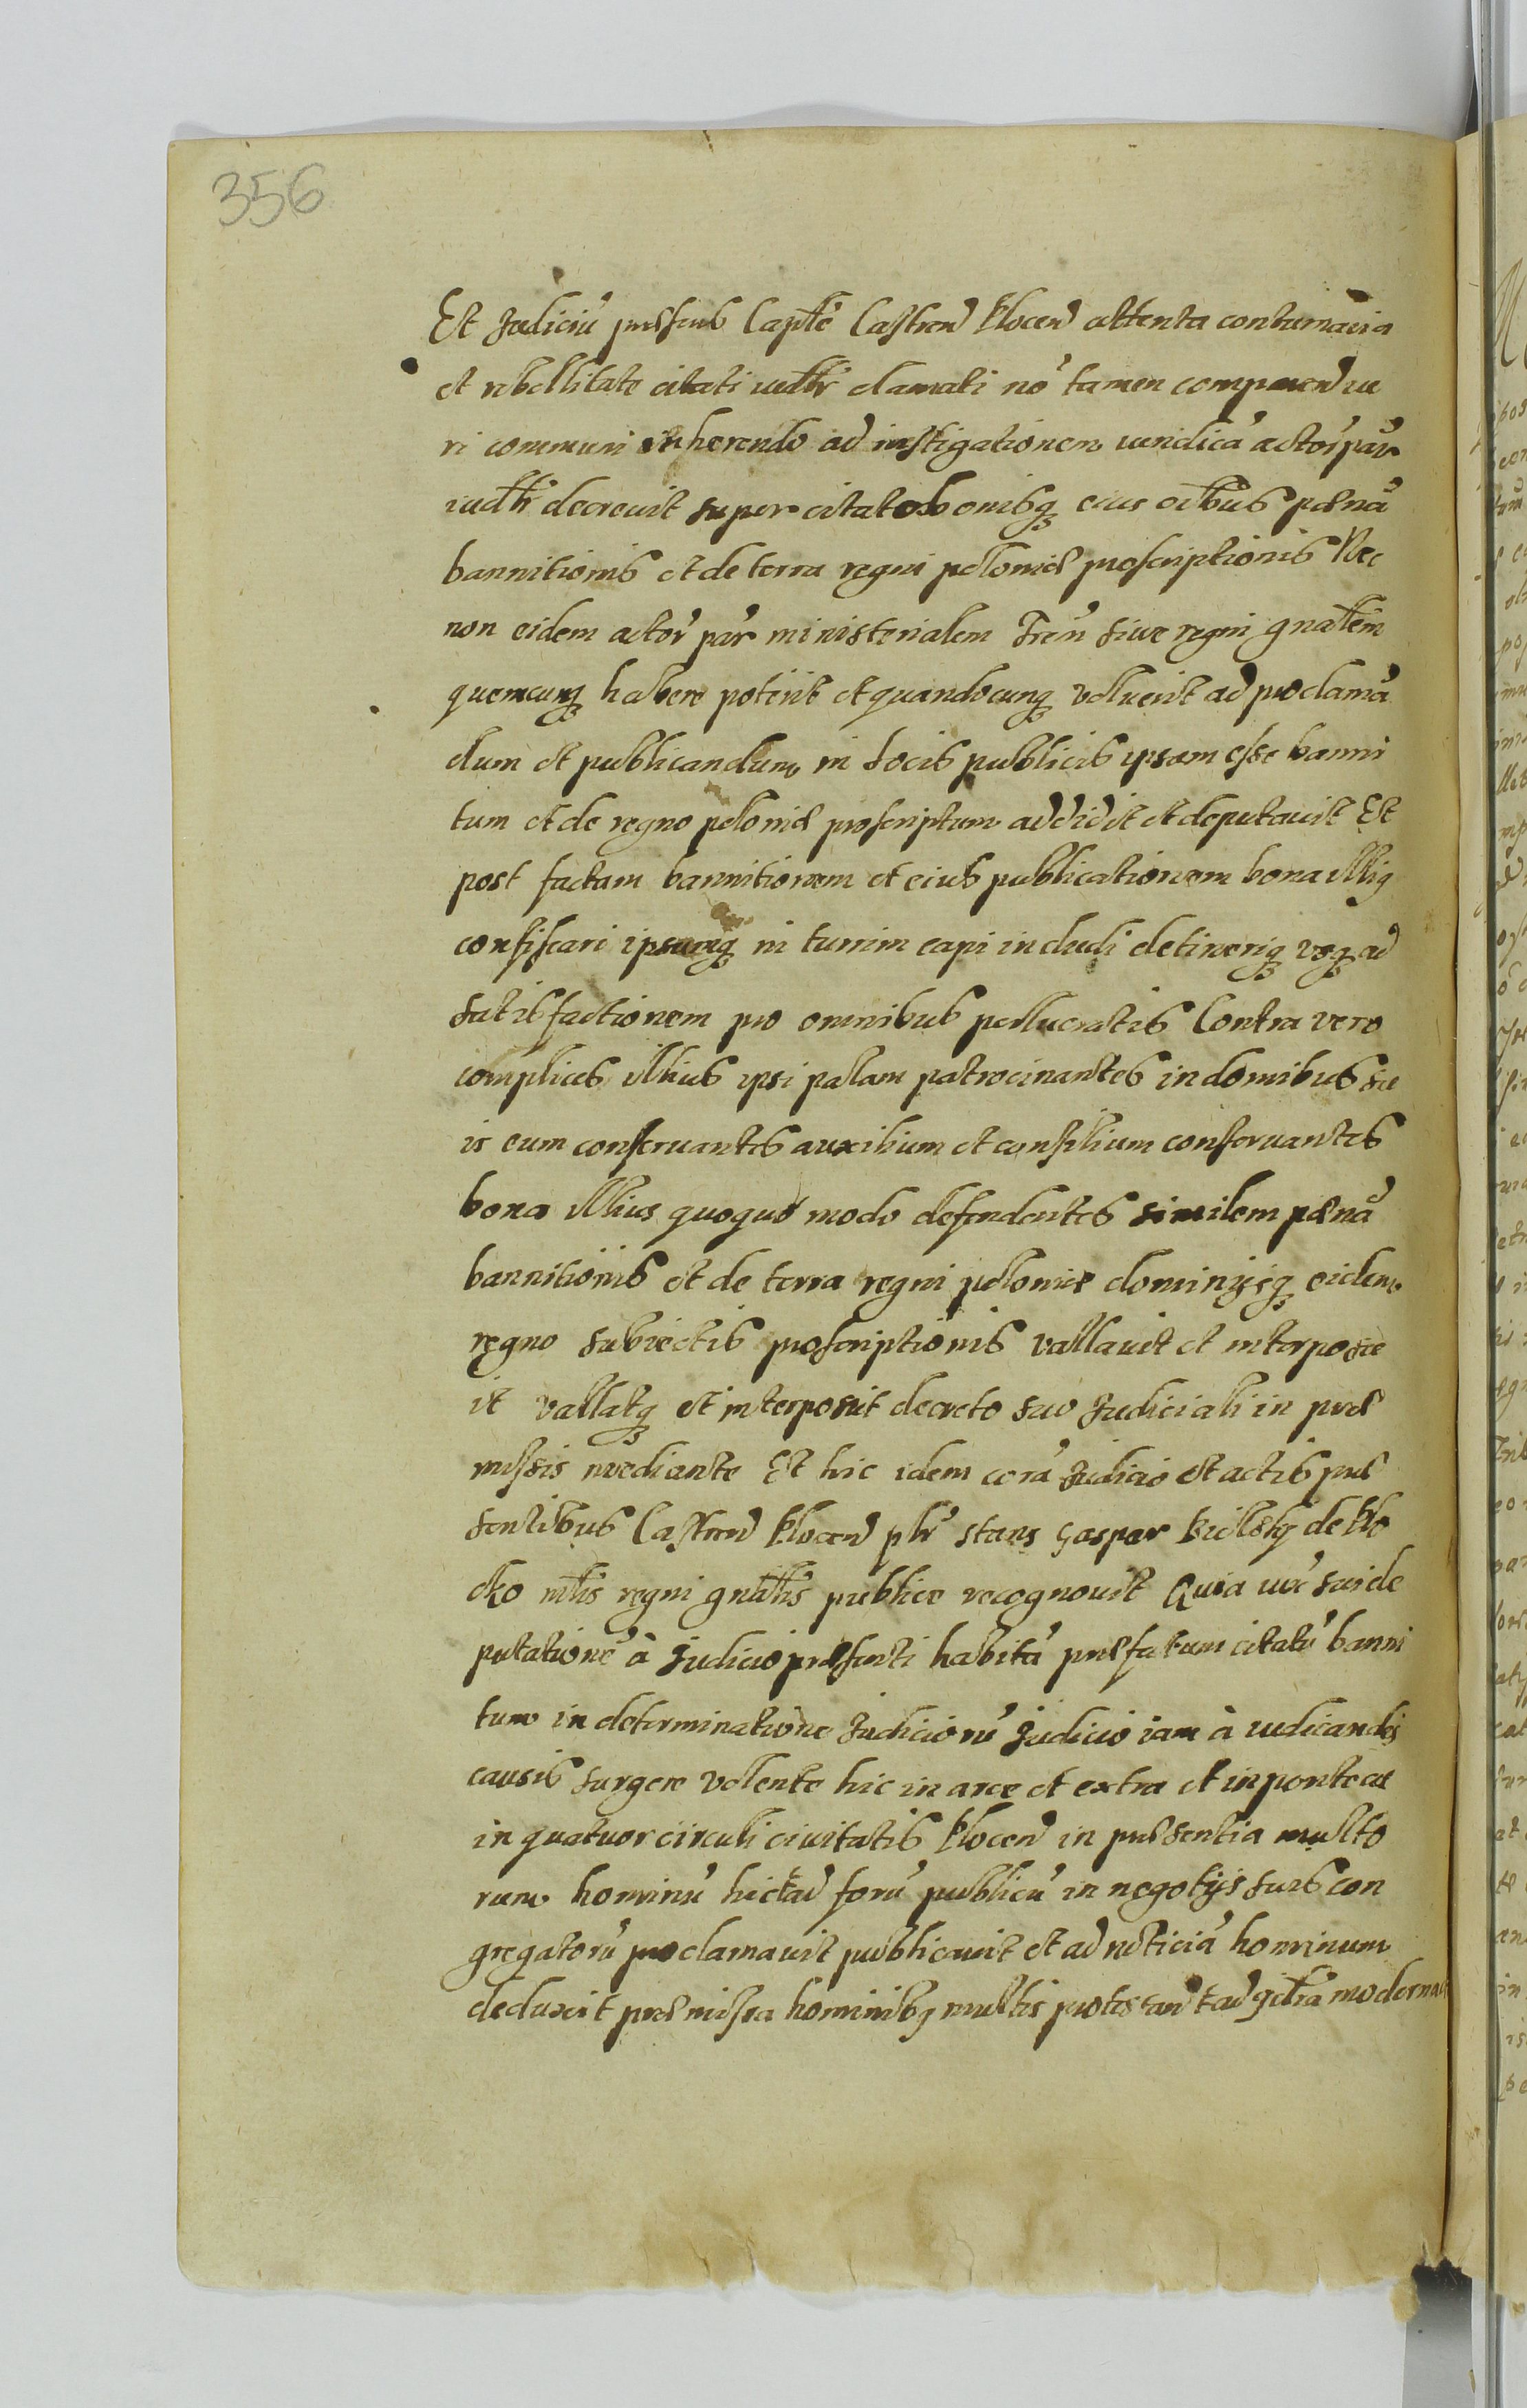 356
Et Judiciū præsens Capꝉte Castren̄ Plocen̄ attenta contumacia
et rebellitate citati iudꝉr clamati nō tamen comparen̄ iu
ri communi inherendo ad instigationem iuridicā actor̄ par̄
iudꝉr decrevit super citato bonisq̨ eius oībus pænā
bannitionis et de terra regni poloniæ proscriptionis Nec
non eidem actor̄ par̄ ministerialem Tren̄ sive regni gnałem
quemcunq̨ habere poterit et quandocunq̨ voluerit ad proclamā
dum et publicandum in locis publicis ipsum esse banni
tum et de regno poloniæ proscriptum addidit et deputavit Et
post factam bannitionem et eius publicationem bona illiq
confiscari ipsumq̨ in turrim capi includi detineriq̨ vsq̨ ad
satisfactionem pro omnibus perlucratis Contra vero
complices illius ipsi palam patrocinantes in domibus su
is eum conservantes auxilium et consilium conservantes
bona illius quoquo modo defendentes similem pænā
bannitionis et de terra regni poloniæ dominijsq̨ eidem
regno subiectis proscriptionis vallavit et interposu
it vallatq̨ et interponit decreto suo Judiciali in præ
missis mediante Et hic idem corā Judicio et actis præ
sentibus Castren̄ Plocen̄ pꝉr stans Gaspar Bielsky de Plo
cko mꝉlis regni gnałlis publice recognovit Quia iux̄ sui de
putationē à Judicio præsenti habitā præfatum citatū banni
tum in determinatione Judiciorū Judicio iam à iudicandis
causis surgere volente hic in arce et extra et in ponte ac
in quatuor circuli civitatis Plocen̄ in præsentia multo
rum hominū hic ad forū publicū in negotijs suis con
gregatorū proclamavit publicavit et ad noticiā hominum
deduxit præmissa hominibq multis